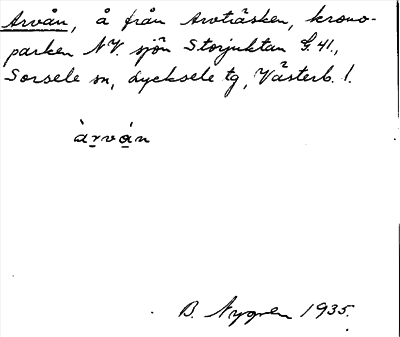 Arvån, å från Arvträsken, krono-
parken NV. sjön Storjuktan G. 41.,
Sorsele sn, Lycksele tg, Västerb. l.
àrvàn
B. Nygren 1935.